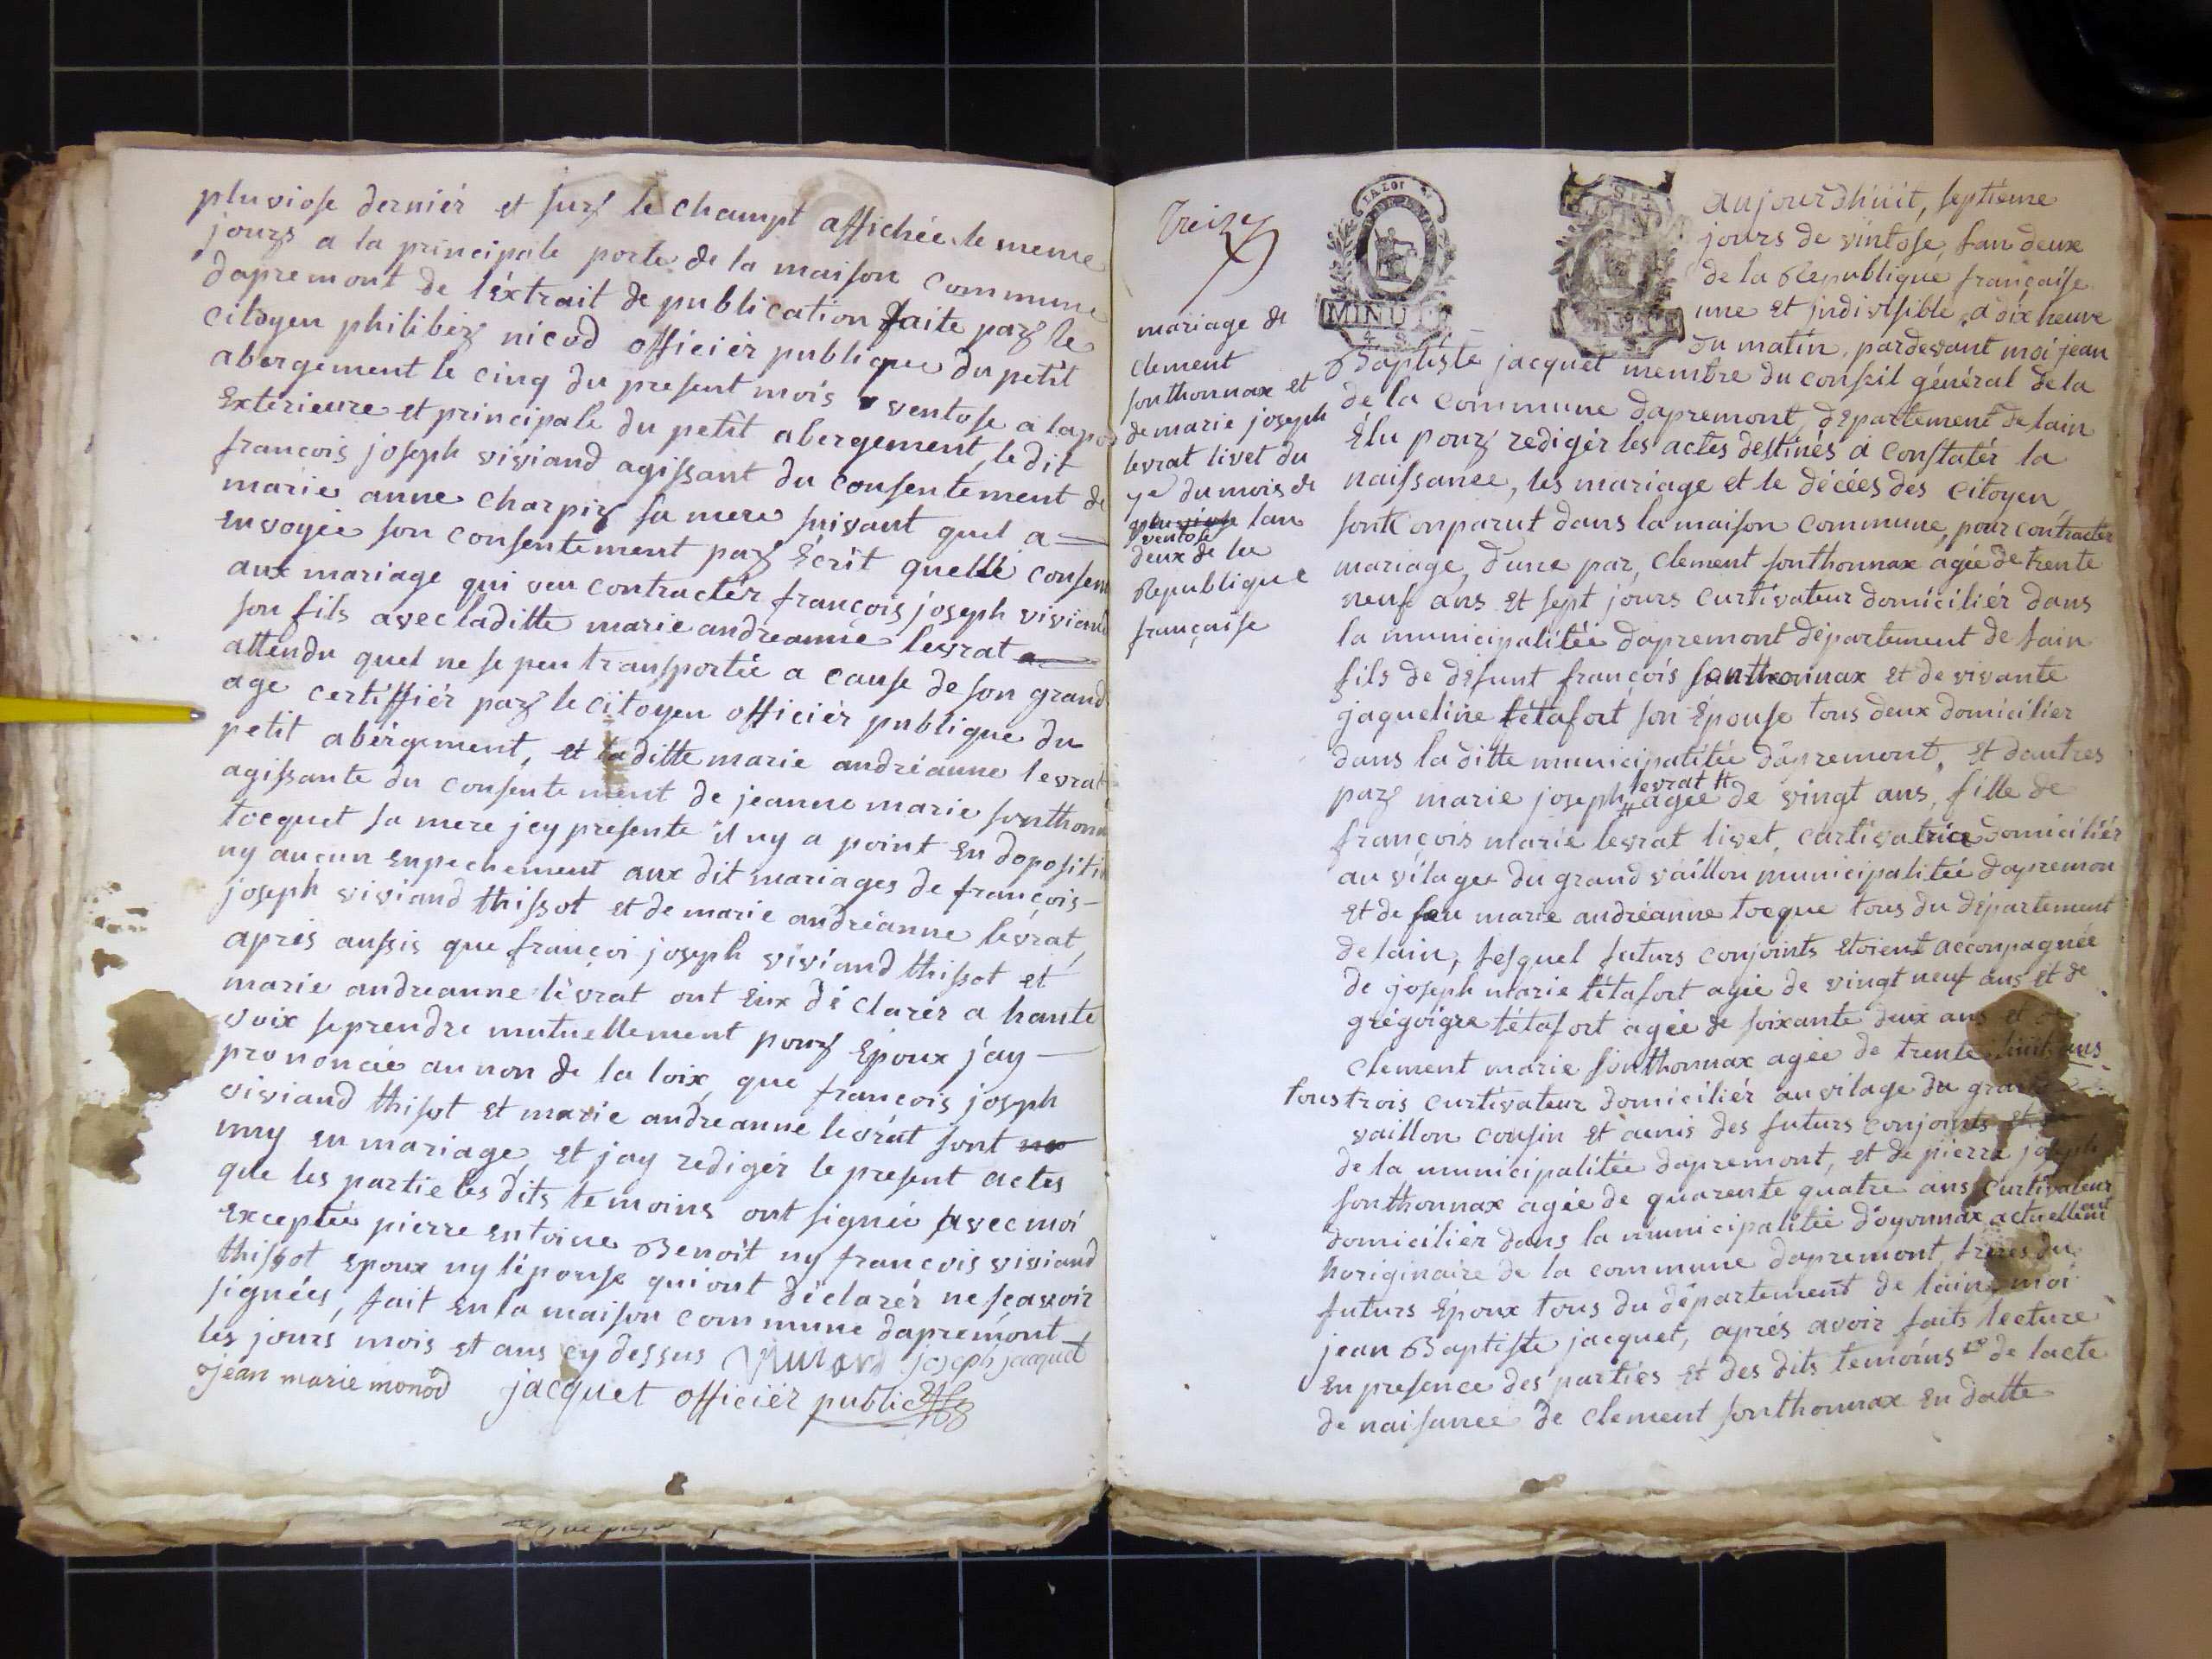 pluviose derniér et surs le champt affichée le meme
jours a la principale porte de la maison commune
dapremont de léxtrait de publication faite pars le
citoyen philibérs nicod officiér publique du petit
abergement le cinq du present mois ventose a la por
Exterieure et principale du petit abergement, le dit
francois joseph viviand agissant du consentement de
marie anne charpirs sa mere suivant quel a
envoyée son consentement pars Écrit quelle consen
aux mariage qui veu contractér françois joseph viviand
son fils avec laditte marie andreanne levrat
attendu quel ne se peu transportée a cause de son grand
age certiffiér pars le citoyen officiér publique du
petit abérgement, et laditte marie andréanne levrat
agissante du consentement de jeanne marie sonthonn
tocquet sa mere jcy presente il ny a point en doposition
ny aucun enpechement aux dit mariages de françois
joseph viviand thissot et de marie andréanne lévrat,
aprés aussis que françoi joseph viviand thissot et
marie andreanne lévrat ont Eux dé clarér a hante
voix se prendre mutuellement pours Epoux j'ay
prononcée au non de la loix, que francois joseph
viviand thisot et marie andreanne levrat sont
uny en mariage et jay redigér le present actes
que les partie les dits temoins ont signée avec moi
Exceptée pierre entoine Benoit ny francois viviand
thissot Epoux ny lépouse qui ont déclarér ne scavoir
signées, fait en la maison commune dapremont
les jours mois et ans cy dessus joseph jacquet
jean marie monod jacquet officiér public
Treize
mariage de
clement
sonthonnax et
de marie joseph
levrat livet du
7e du mois de
pluviose lan
ventose
deux de la
Republique
française
MINUTE
aujourdhuit, septiéme
jours de vintose, lan deux
de la Republique française
une et jndivisible, a dix heure
du matin, pardevant moi jean
Baptiste jacquet membre du conseil général de la
de la commune dapremont, département de lain
Élu pours redigér les actes destinés a constatér la
naissance, les mariage et le décées des citoyen,
sont conparut dans la maison commune, pour contractér
mariage, dune par, clement sonthonnax agée de trente
neuf ans et sept jours curtivateur domiciliér dans
la municipalitée dapremont département de lain
fils de défunt francois sonthonnax et de vivante
jaqueline tétafort son Épouse tous deux domicilier
dans la ditte municipalitée dapremont, et dautres
levrat #
pars marie joseph # agée de vingt ans, fille de
françois marie levrat livet, curtivatrice domiciliér
au vilages du grand vaillon municipalitée dapremon
et de feu marie andréanne tocque tous du département
de lain, lesquel futurs conjoints etoient acconpagnée
de joseph marie tétafort agée de vingt neuf ans et de
grégoigre tétafort agée de soixante deux ans et de
clement marie sonthonnax agée de trente huit ans
tous trois curtivateur domiciliér au vilage du grand
vaillon cousin et amis des futurs conjoints et de
de la municipalitée dapremont, et de pierre joseph
sonthonnax agée de quarente quatre ans curtivateur
domiciliér dans la municipalitée doyonnax actuellement
horiginaire de la commune dapremont, freres du
futurs Époux tous du département de lain, moi
jean Baptiste jacquet, aprés avoir faits lecture
En presence des parties et des dits temoins de lacte
de naisance de clement sonthonnax en datte